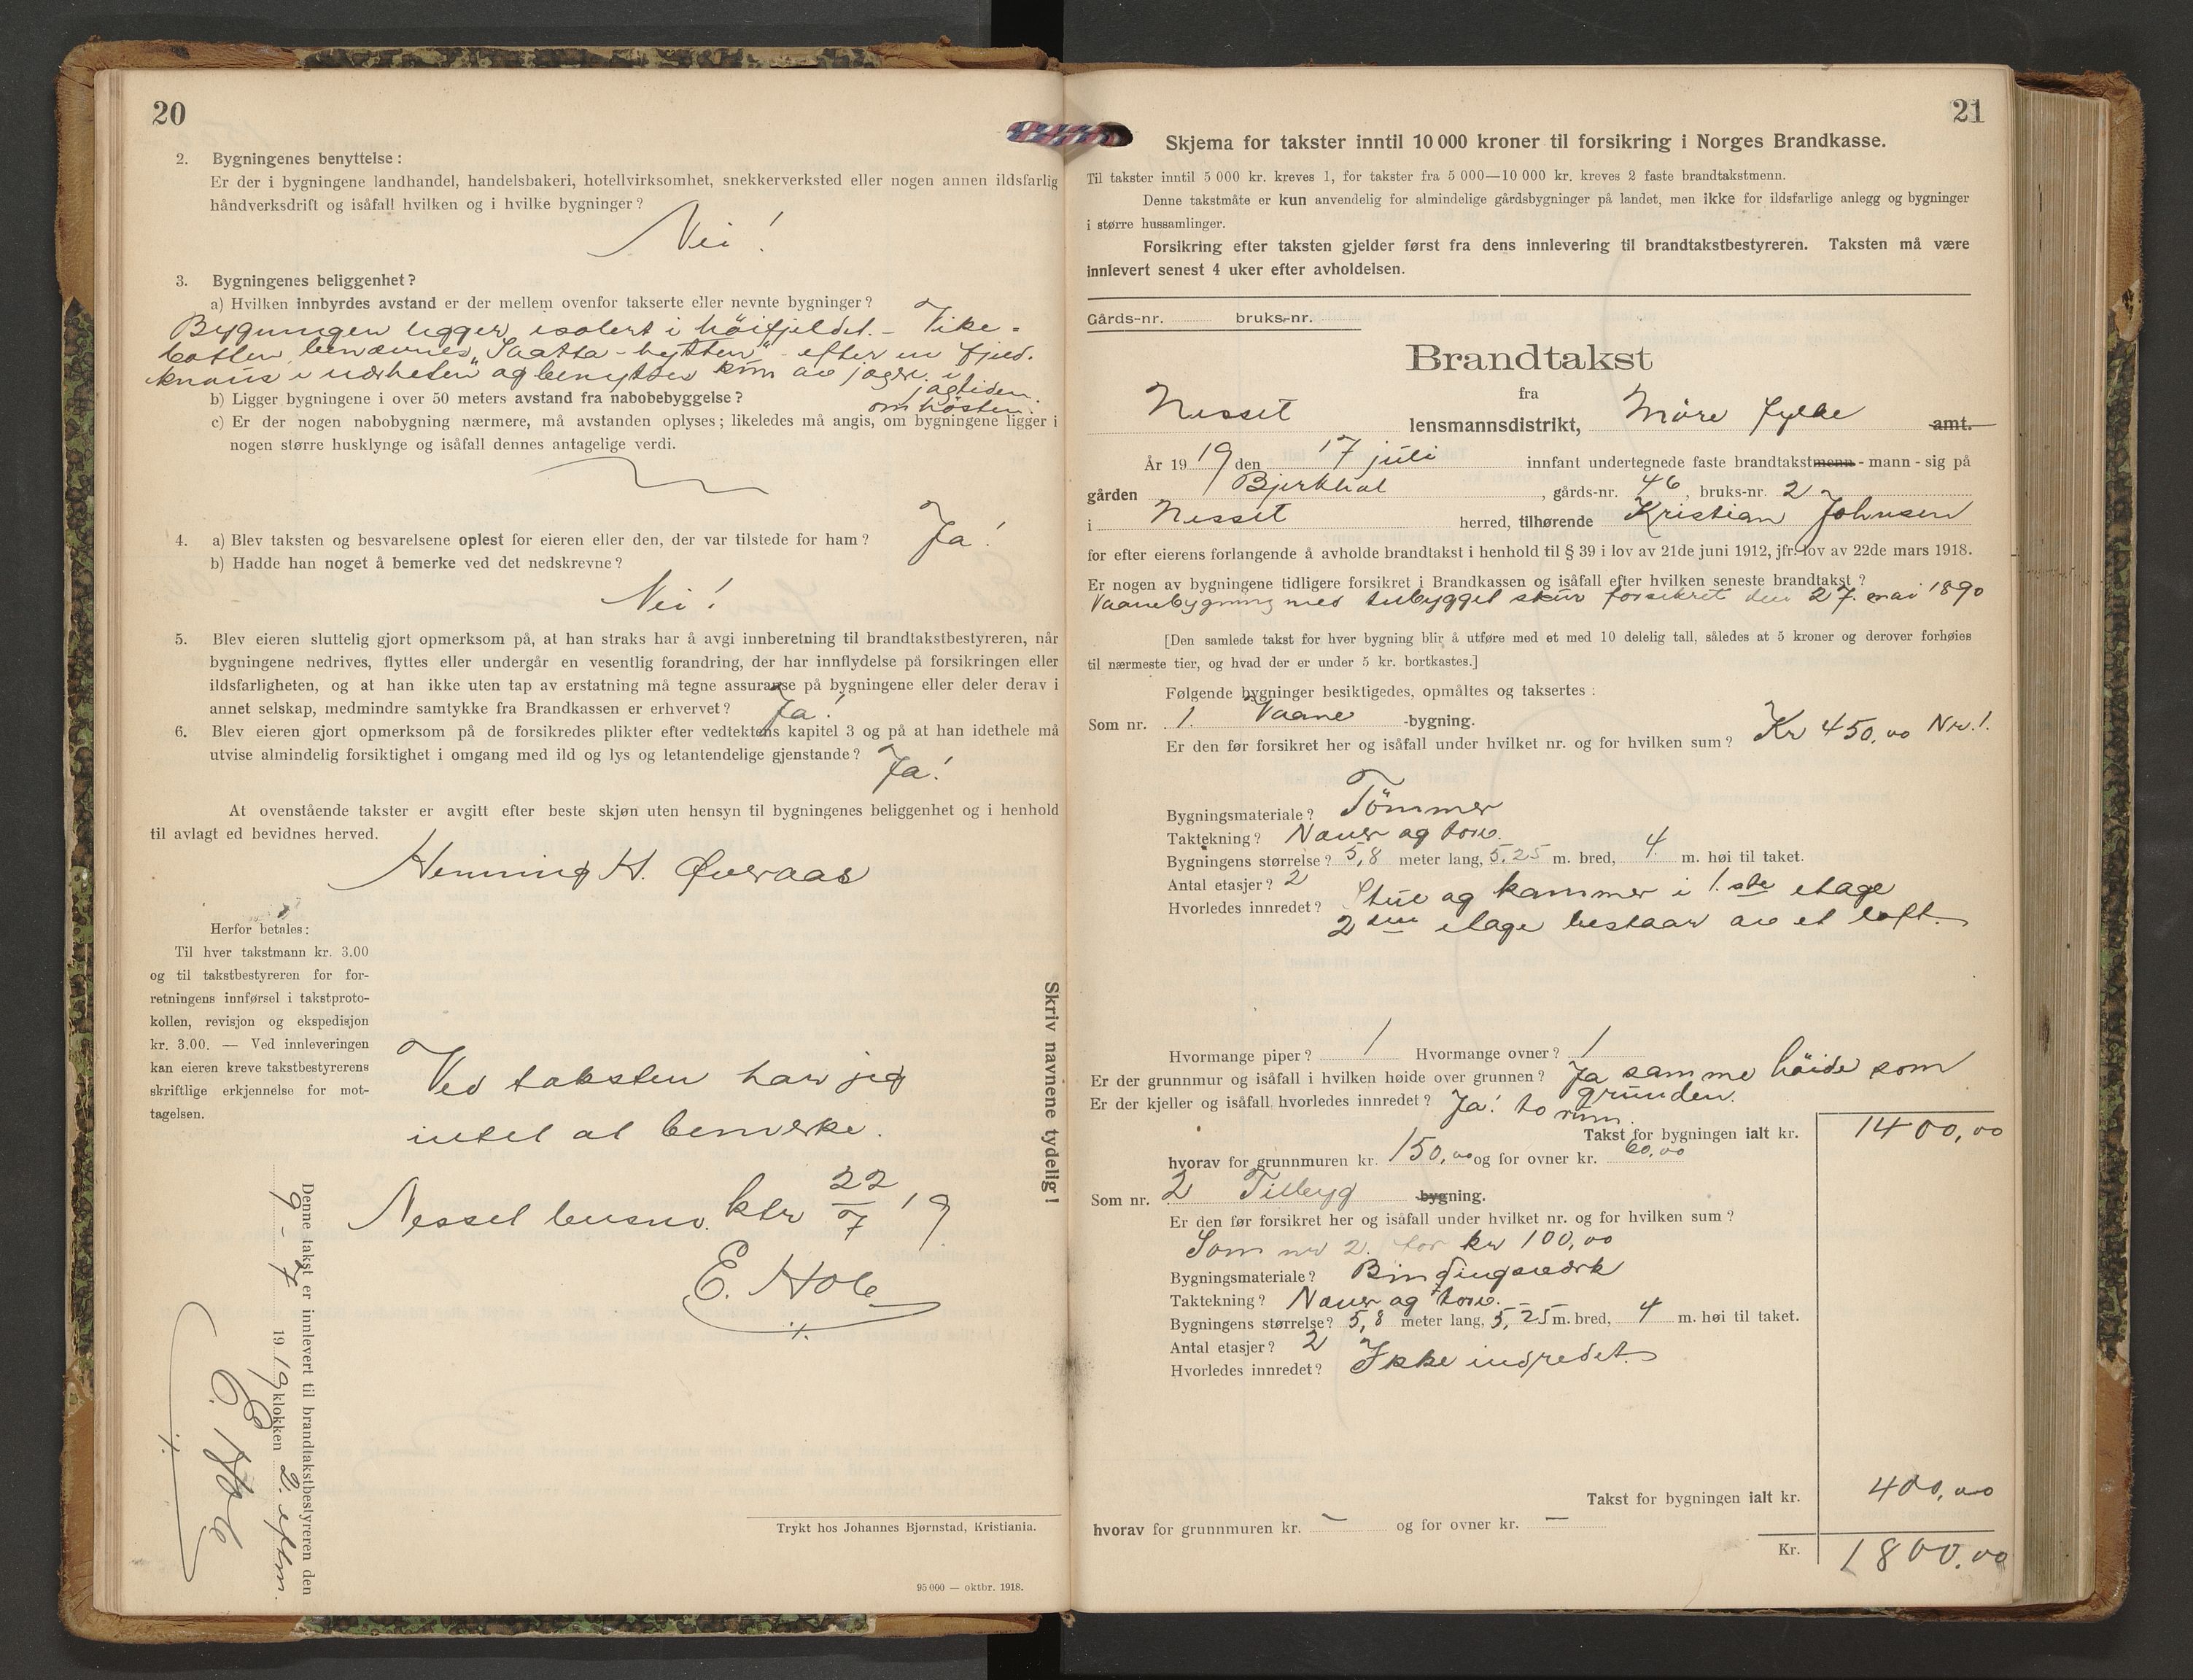 20
2. Bygningenes benyttelse:
Er der i bygningene landhandel, handelsbakeri, hotellvirksomhet, snekkerverksted eller nogen annen ildsfarlig
håndverksdrift og isåfall hvilken og i hvilke bygninger?
Nei!
3. Bygningenes beliggenhet?
a) Hvilken innbyrdes avstand er der mellem ovenfor takserte eller nevnte bygninger?
Bygningen ligger isolert i höifjeldet. -
benævnes - hytten" - efter en fjeld.
knaus i nærheten og benyttes kun av jægere i
jagtiden
b) Ligger bygningene i over 50 meters avstand fra nabobebyggelse?
om hösten.
c) Er der nogen nabobygning nærmere, må avstanden oplyses; likeledes må angis, om bygningene ligger i
nogen større husklynge og isåfall dennes antagelige verdi.
4. a) Blev taksten og besvarelsene oplest for eieren eller den, der var tilstede for ham? Ja!
b) Hadde han noget å bemerke ved det nedskrevne?
Nei!
5. Blev eieren sluttelig gjort opmerksom på, at han straks har å avgi innberetning til brandtakstbestyreren, når
bygningene nedrives, flyttes eller undergår en vesentlig forandring, der har innflydelse på forsikringen eller
ildsfarligheten, og at han ikke uten tap av erstatning må tegne assuranse på bygningene eller deler derav i
annet selskap, medmindre samtykke fra Brandkassen er erhvervet? Ja!
6. Blev eieren gjort opmerksom på de forsikredes plikter efter vedtektens kapitel 3 og på at han idethele må
utvise almindelig forsiktighet i omgang med ild og lys og letantendelige gjenstande? Ja!
At ovenstående takster er avgitt efter beste skjøn uten hensyn til bygningenes beliggenhet og i henhold
til avlagt ed bevidnes herved.
Henning H. Øveraas
Herfor betales:
Til hver takstmann kr. 3.00
og til takstbestyreren for for-
retningens innførsel i takstproto-
kollen, revisjon og ekspedisjon
kr. 3.00. — Ved innleveringen
kan eieren kreve takstbestyrerens
skriftlige erkjennelse for mot-
tagelsen.
Ved taksten har jeg
intet at bemerke.
Nesset lensm. ktr 22/7 19
E. Hole
Denne takst er innlevert til brandtakstbestyreren den
9-7 1919 klokken 2. eftm.
E. Hole
Skriv navnene tydelig!
Trykt hos Johannes Bjørnstad, Kristiania.
95 000 — oktbr. 1918.
21
Skjema for takster inntil 10 000 kroner til forsikring i Norges Brandkasse.
Til takster inntil 5 000 kr. kreves 1, for takster fra 5 000—10 000 kr. kreves 2 faste brandtakstmenn.
Denne takstmåte er kun anvendelig for almindelige gårdsbygninger på landet, men ikke for ildsfarlige anlegg og bygninger
i større hussamlinger.
Forsikring efter taksten gjelder først fra dens innlevering til brandtakstbestyreren. Taksten må være
innlevert senest 4 uker efter avholdelsen.
Gårds-nr. bruks-nr.
Brandtakst
fra
Nesset lensmannsdistrikt, Möre fylke amt.
År 1919 den 17 juli innfant undertegnede faste brandtakstmenn - mann - sig på
gården Bjerkhol, gårds-nr. 46, bruks-nr. 2
i Nesset herred, tilhørende Kristian Johnsen
for efter eierens forlangende å avholde brandtakst i henhold til § 39 i lov av 21de juni 1912, jfr. lov av 22de mars 1918.
Er nogen av bygningene tidligere forsikret i Brandkassen og isåfall efter hvilken seneste brandtakst?
Vaanebygning med tilbygget skur forsikret den 27. mai 1890
[Den samlede takst for hver bygning blir å utføre med et med 10 delelig tall, således at 5 kroner og derover forhøies
til nærmeste tier, og hvad der er under 5 kr. bortkastes.]
Følgende bygninger besiktigedes, opmåltes og taksertes:
Som nr. 1. Vaane -bygning.
Er den før forsikret her og isåfall under hvilket nr. og for hvilken sum? Kr 450,00 Nr. 1.
Bygningsmateriale? Tömmer
Taktekning? Næver og torv.
Bygningens størrelse? 5,8 meter lang, 5,25 m. bred, 4. m. høi til taket.
Antal etasjer? 2
Hvorledes innredet? Stue og kammer i 1.ste etage
2den etage bestaar av et loft.
Hvormange piper? 1 Hvormange ovner? 1
Er der grunnmur og isåfall i hvilken høide over grunnen? Ja samme höide som
grunden.
Er der kjeller og isåfall hvorledes innredet? Ja! to rum.
Takst for bygningen ialt kr. 1400,00
hvorav for grunnmuren kr. 150,00 og for ovner kr. 60,00
Som nr. 2 Tilbyg -bygning.
Er den før forsikret her og isåfall under hvilket nr. og for hvilken sum?
Som nr 2. for kr 100,00
Bygningsmateriale? Bindingsværk
Taktekning? Næver og torv.
Bygningens størrelse? 5,8 meter lang, 5,25 m. bred, 4 m. høi til taket.
Antal etasjer? 2
Hvorledes innredet? Ikke indredet.
Takst for bygningen ialt kr. 400,00
hvorav for grunnmuren kr. — og for ovner kr. —
Kr. 1800,00